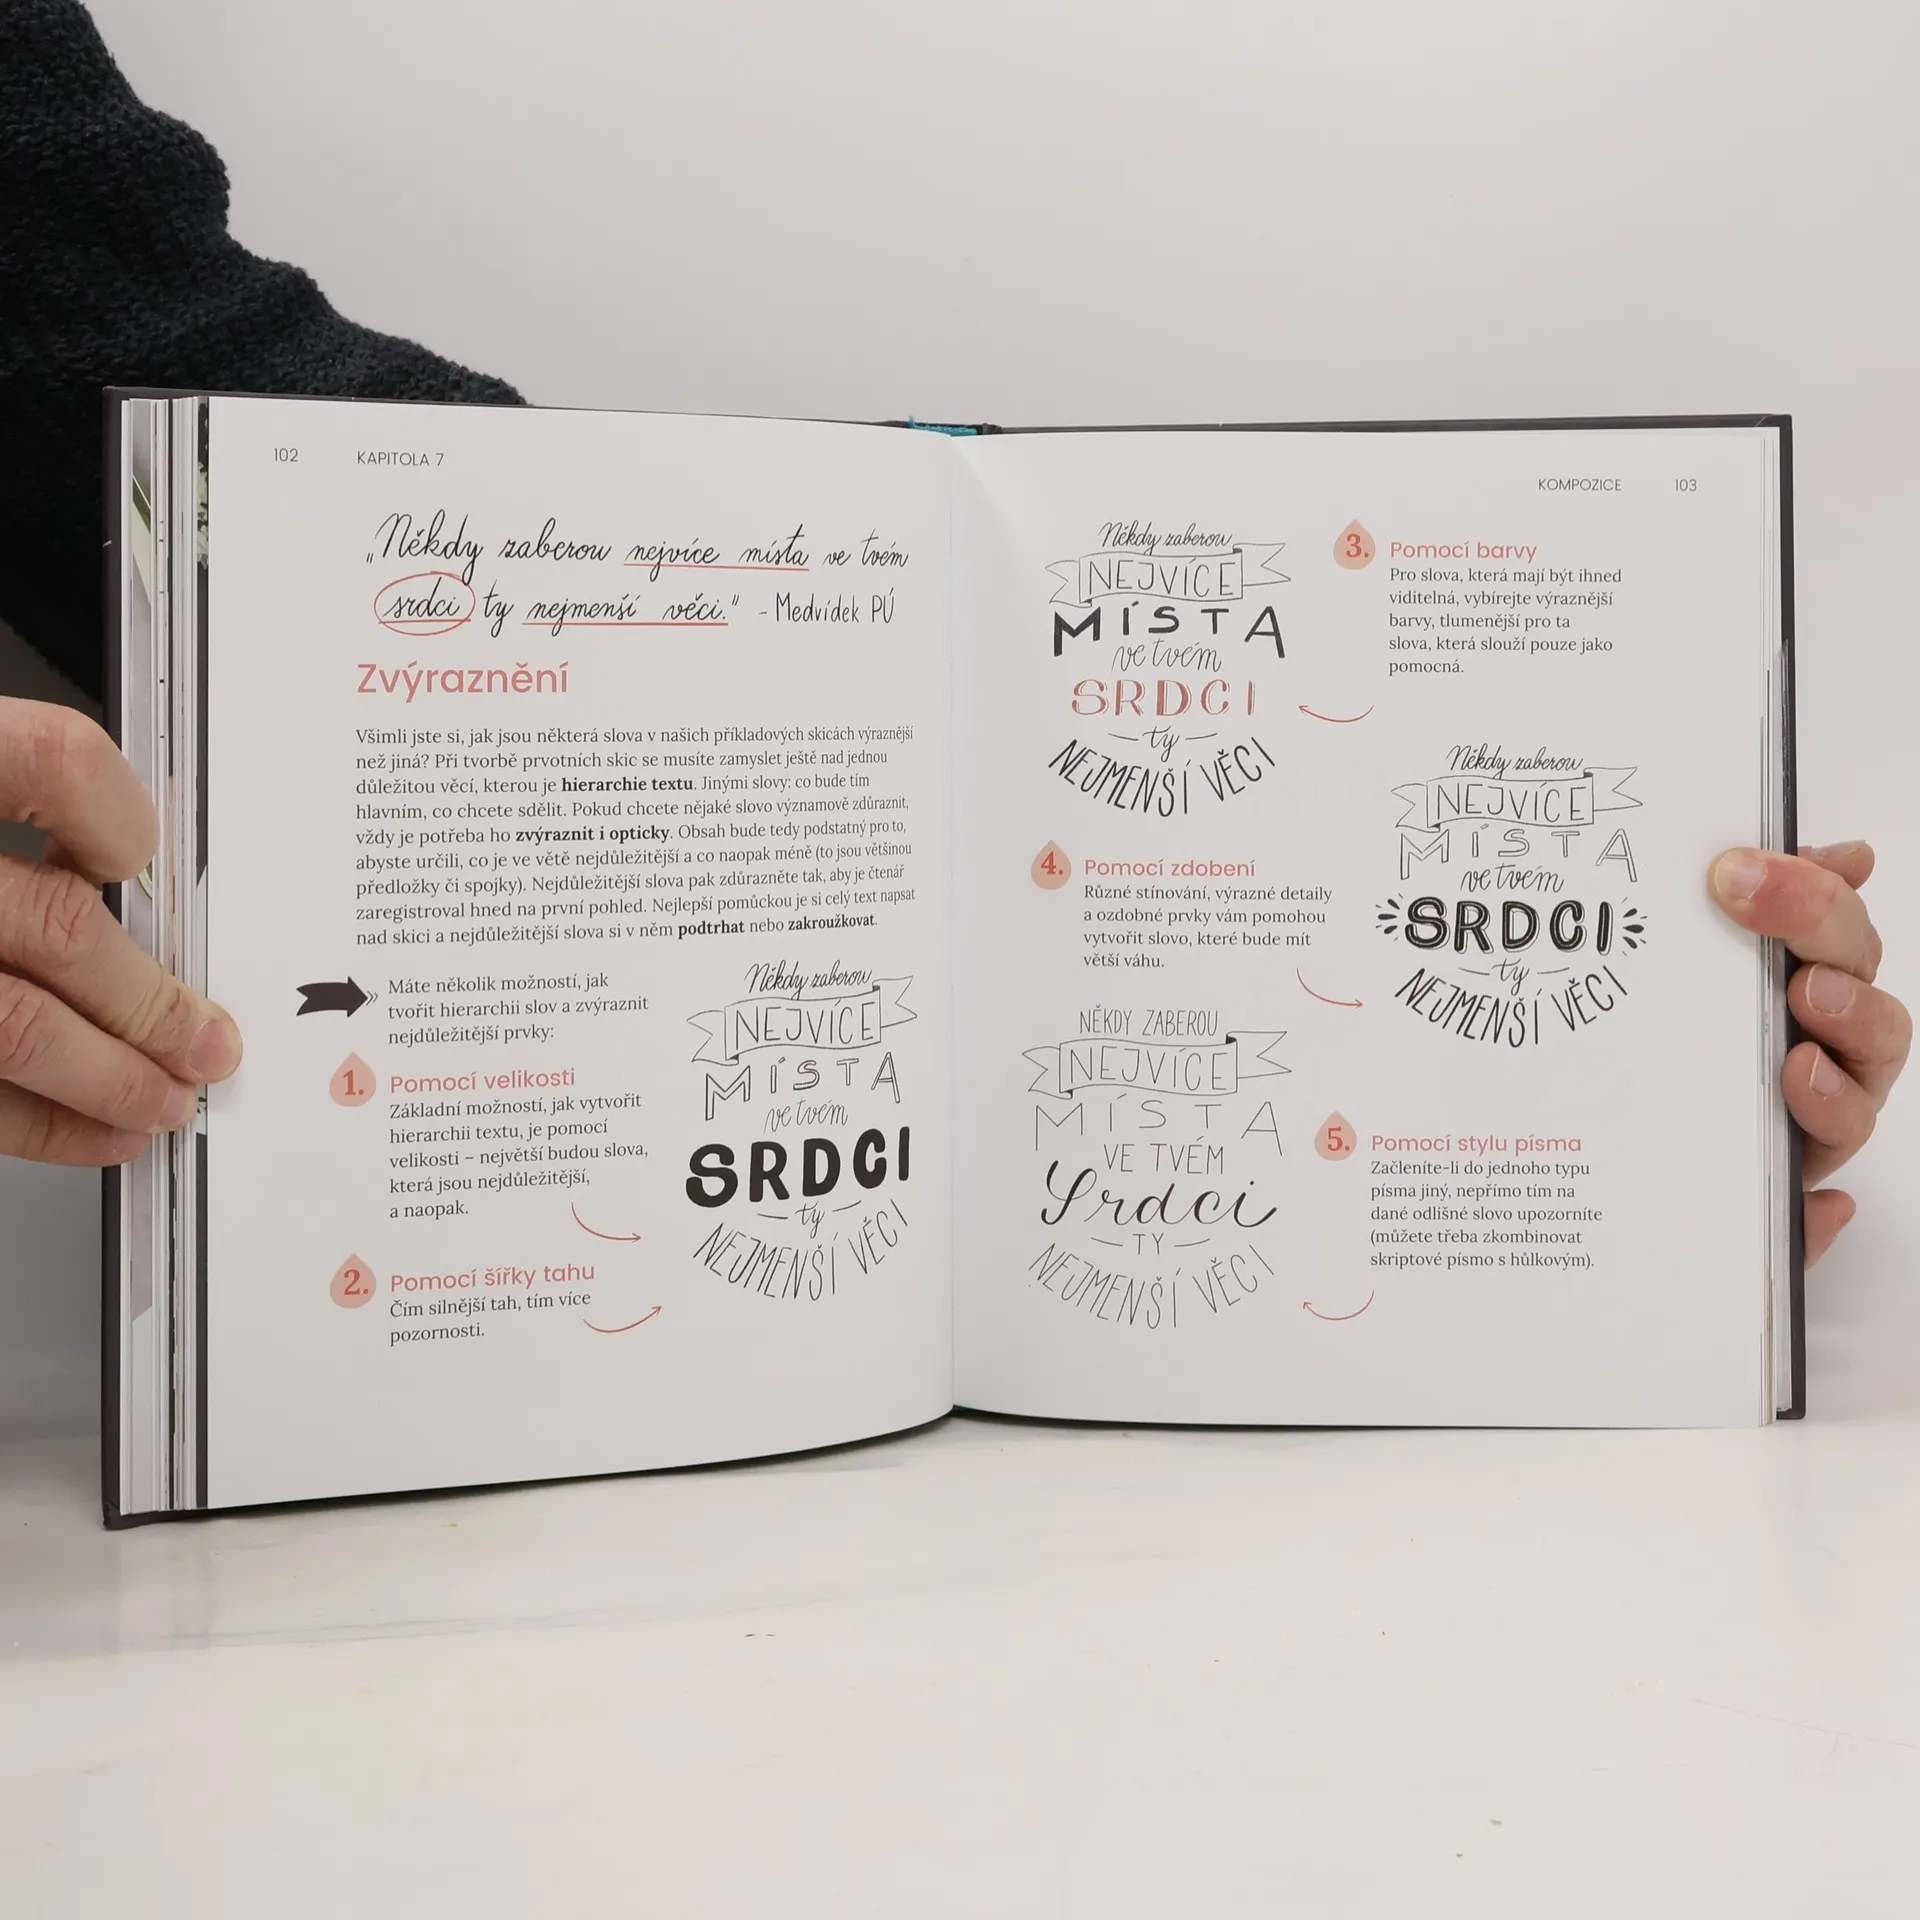 102 KAPITOLA 7
„Někdy zaberou nejvíce místa ve tvém
srdci ty nejmenší věci." - Medvídek PÚ
Zvýraznění
Všimli jste si, jak jsou některá slova v našich příkladových skicách výraznější
než jiná? Při tvorbě prvotních skic se musíte zamyslet ještě nad jednou
důležitou věcí, kterou je hierarchie textu. Jinými slovy: co bude tím
hlavním, co chcete sdělit. Pokud chcete nějaké slovo významově zdůraznit,
vždy je potřeba ho zvýraznit i opticky. Obsah bude tedy podstatný pro to,
abyste určili, co je ve větě nejdůležitější a co naopak méně (to jsou většinou
předložky či spojky). Nejdůležitější slova pak zdůrazněte tak, aby je čtenář
zaregistroval hned na první pohled. Nejlepší pomůckou je si celý text napsat
nad skici a nejdůležitější slova si v něm podtrhat nebo zakroužkovat.
Máte několik možností, jak
tvořit hierarchii slov a zvýraznit
nejdůležitější prvky:
1. Pomocí velikosti
Základní možností, jak vytvořit
hierarchii textu, je pomocí
velikosti – největší budou slova,
která jsou nejdůležitější,
a naopak.
2. Pomocí šířky tahu
Čím silnější tah, tím více
pozornosti.
Někdy zaberou
NEJVÍCE
MÍSTA
ve tvém
SRDCI
ty
NEJMENŠÍ VĚCI
KOMPOZICE 103
Někdy zaberou
NEJVÍCE
MÍSTA
ve tvém
SRDCI
ty
NEJMENŠÍ VĚCI
3. Pomocí barvy
Pro slova, která mají být ihned
viditelná, vybírejte výraznější
barvy, tlumenější pro ta
slova, která slouží pouze jako
pomocná.
4. Pomocí zdobení
Různé stínování, výrazné detaily
a ozdobné prvky vám pomohou
vytvořit slovo, které bude mít
větší váhu.
Někdy zaberou
NEJVÍCE
MÍSTA
ve tvém
SRDCI
ty
NEJMENŠÍ VĚCI
NĚKDY ZABEROU
NEJVÍCE
MÍSTA
VE TVÉM
Srdci
TY
NEJMENŠÍ VĚCI
5. Pomocí stylu písma
Začleníte-li do jednoho typu
písma jiný, nepřímo tím na
dané odlišné slovo upozorníte
(můžete třeba zkombinovat
skriptové písmo s hůlkovým).